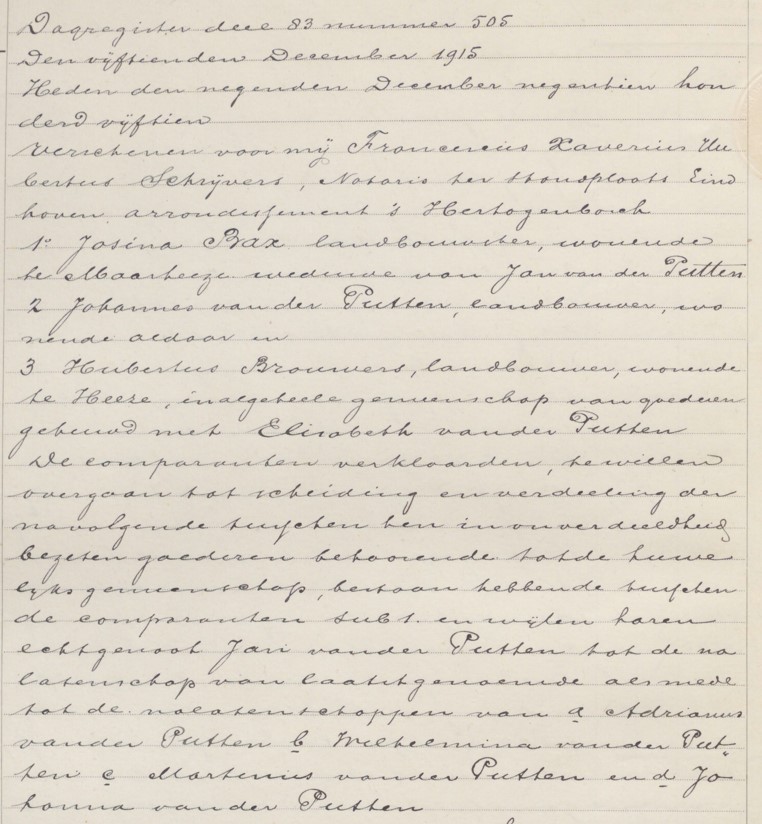 Dagregister deel 83 nummer 505
Den vijftienden December 1915
Heden den negenden December negentien hon
derd vijftien
verschenen voor mij Franciscus Xaverius Hu
bertus Schrijvers, Notaris ter standplaats Eind
hoven arrondissement 's Hertogenbosch
1º Josina Bax landbouwster, wonende
te Maarheeze weduwe van Jan van der Putten
2 Johannes van der Putten, landbouwer, wo
nende aldaar en
3 Hubertus Brouwers, landbouwer, wonende
te Heeze, in algeheele gemeenschap van goederen
gehuwd met Elisabeth van der Putten
De comparanten verklaarden, te willen
overgaan tot scheiding en verdeeling der
navolgende tusschen hen in onverdeeldheid
bezeten goederen behoorende tot de huwe
lijks gemeenschap, bestaan hebbende tusschen
de comparanten sub 1. en wijlen haren
echtgenoot Jan van der Putten tot de na
latenschap van laatstgenoemde alsmede
tot de nalatenschappen van a Adrianus
van der Putten b Wilhelmina van der Put„
ten c Martinus van der Putten en d Jo
hanna van der Putten